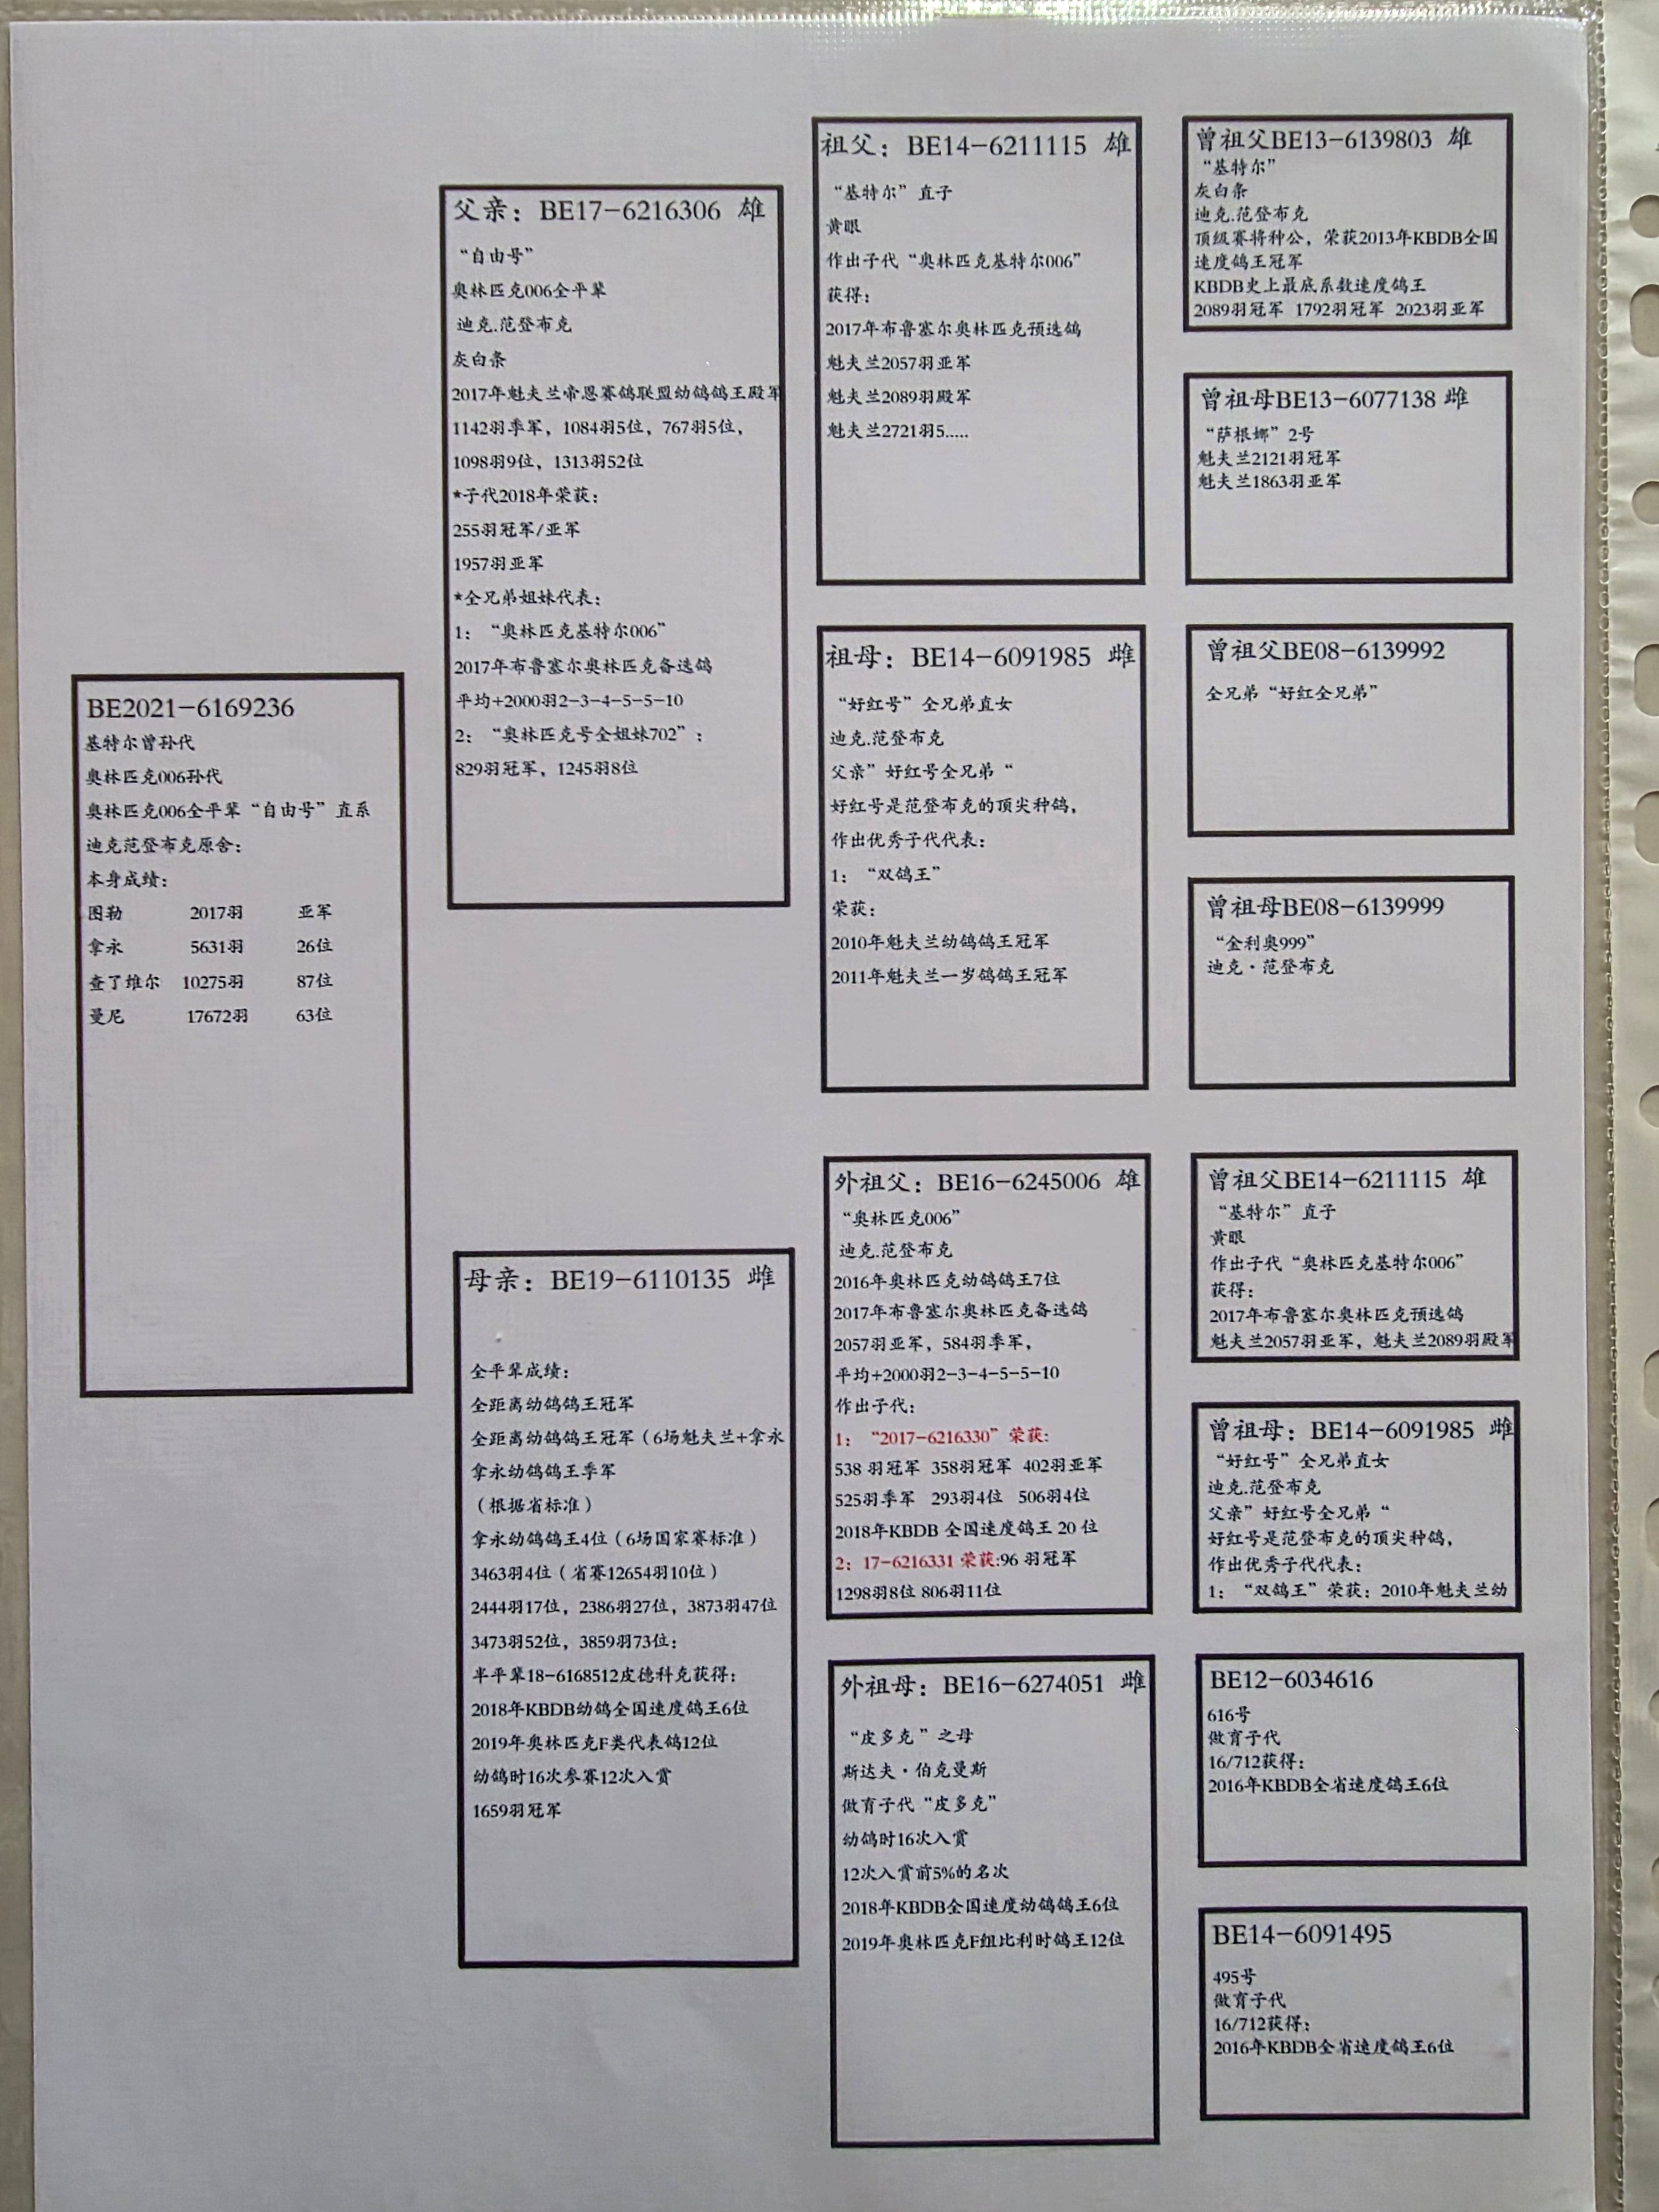 BE2021-6169236
基特尔曾孙代
奥林匹克006孙代
奥林匹克006全平辈“自由号”直系
迪克范登布克原舍:
本身成绩:
图勒 2017羽 亚军
拿永 5631羽 26位
查了维尔 10275羽 87位
曼尼 17672羽 63位
父亲: BE17-6216306 雄
“自由号”
奥林匹克006全平辈
迪克.范登布克
灰白条
2017年魁夫兰帝恩赛鸽联盟幼鸽鸽王殿军
1142羽季军, 1084羽5位, 767羽5位,
1098羽9位, 1313羽52位
*子代2018年荣获:
255羽冠军/亚军
1957羽亚军
*全兄弟姐妹代表:
1: “奥林匹克基特尔006”
2017年布鲁塞尔奥林匹克备选鸽
平均+2000羽2-3-4-5-5-10
2: “奥林匹克号全姐妹702”:
829羽冠军, 1245羽8位
母亲: BE19-6110135 雌
全平辈成绩:
全距离幼鸽鸽王冠军
全距离幼鸽鸽王冠军(6场魁夫兰+拿永
拿永幼鸽鸽王季军
(根据省标准)
拿永幼鸽鸽王4位(6场国家赛标准)
3463羽4位(省赛12654羽10位)
2444羽17位, 2386羽27位, 3873羽47位
3473羽52位, 3859羽73位:
半平辈18-6168512皮德科克获得:
2018年KBDB幼鸽全国速度鸽王6位
2019年奥林匹克F类代表鸽12位
幼鸽时16次参赛12次入赏
1659羽冠军
祖父: BE14-6211115 雄
“基特尔”直子
黄眼
作出子代“奥林匹克基特尔006”
获得:
2017年布鲁塞尔奥林匹克预选鸽
魁夫兰2057羽亚军
魁夫兰2089羽殿军
魁夫兰2721羽5.....
祖母: BE14-6091985 雌
“好红号”全兄弟直女
迪克.范登布克
父亲”好红号全兄弟“
好红号是范登布克的顶尖种鸽,
作出优秀子代代表:
1: “双鸽王”
荣获:
2010年魁夫兰幼鸽鸽王冠军
2011年魁夫兰一岁鸽鸽王冠军
外祖父: BE16-6245006 雄
“奥林匹克006”
迪克.范登布克
2016年奥林匹克幼鸽鸽王7位
2017年布鲁塞尔奥林匹克备选鸽
2057羽亚军, 584羽季军,
平均+2000羽2-3-4-5-5-10
作出子代:
1: “2017-6216330”荣获:
538 羽冠军 358羽冠军 402羽亚军
525羽季军 293羽4位 506羽4位
2018年KBDB 全国速度鸽王 20 位
2: 17-6216331 荣获:96 羽冠军
1298羽8位 806羽11位
外祖母: BE16-6274051 雌
“皮多克”之母
斯达夫·伯克曼斯
做育子代“皮多克”
幼鸽时16次入赏
12次入赏前5%的名次
2018年KBDB全国速度幼鸽鸽王6位
2019年奥林匹克F组比利时鸽王12位
曾祖父BE13-6139803 雄
“基特尔”
灰白条
迪克.范登布克
顶级赛将种公, 荣获2013年KBDB全国
速度鸽王冠军
KBDB史上最底系数速度鸽王
2089羽冠军 1792羽冠军 2023羽亚军
曾祖母BE13-6077138 雌
“萨根娜”2号
魁夫兰2121羽冠军
魁夫兰1863羽亚军
曾祖父BE08-6139992
全兄弟“好红全兄弟”
曾祖母BE08-6139999
“金利奥999”
迪克·范登布克
曾祖父BE14-6211115 雄
“基特尔”直子
黄眼
作出子代“奥林匹克基特尔006”
获得:
2017年布鲁塞尔奥林匹克预选鸽
魁夫兰2057羽亚军, 魁夫兰2089羽殿军
曾祖母: BE14-6091985 雌
“好红号”全兄弟直女
迪克.范登布克
父亲”好红号全兄弟“
好红号是范登布克的顶尖种鸽,
作出优秀子代代表:
1: “双鸽王”荣获: 2010年魁夫兰幼
BE12-6034616
616号
做育子代
16/712获得:
2016年KBDB全省速度鸽王6位
BE14-6091495
495号
做育子代
16/712获得:
2016年KBDB全省速度鸽王6位